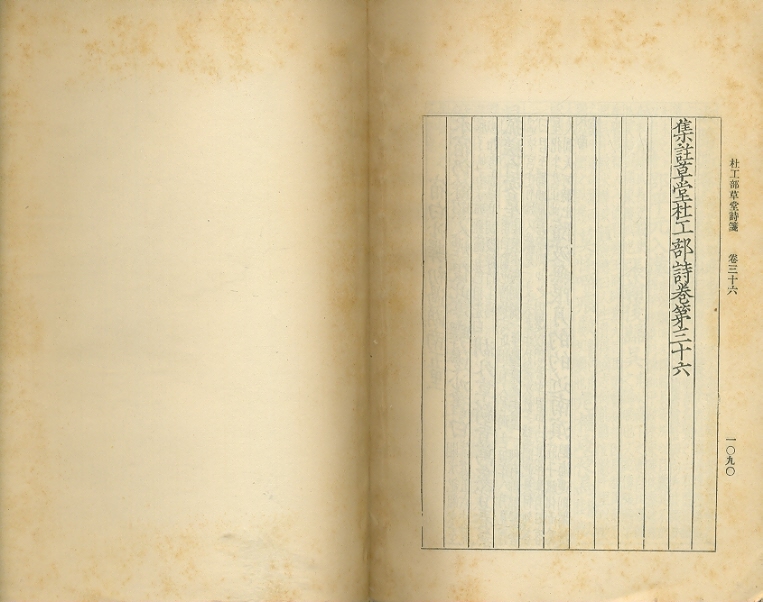 杜工部草堂詩箋 卷三十六
一〇九〇
集註草堂杜工部詩卷第三十六